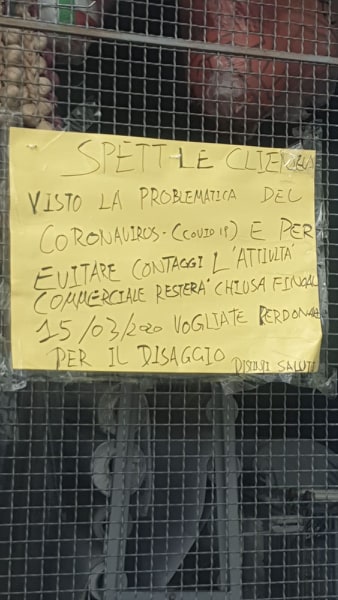 SPETT-LE CLIENTELA
VISTO LA PROBLEMATICA DEL
CORONAVIRUS-(COVID 19) E PER
EVITARE CONTAGGI L'ATTIVITÀ
COMMERCIALE RESTERÀ CHIUSA FINO AL
15/03/2020 VOGLIATE PERDONARE
PER IL DISAGGIO DISTINTI SALUTI